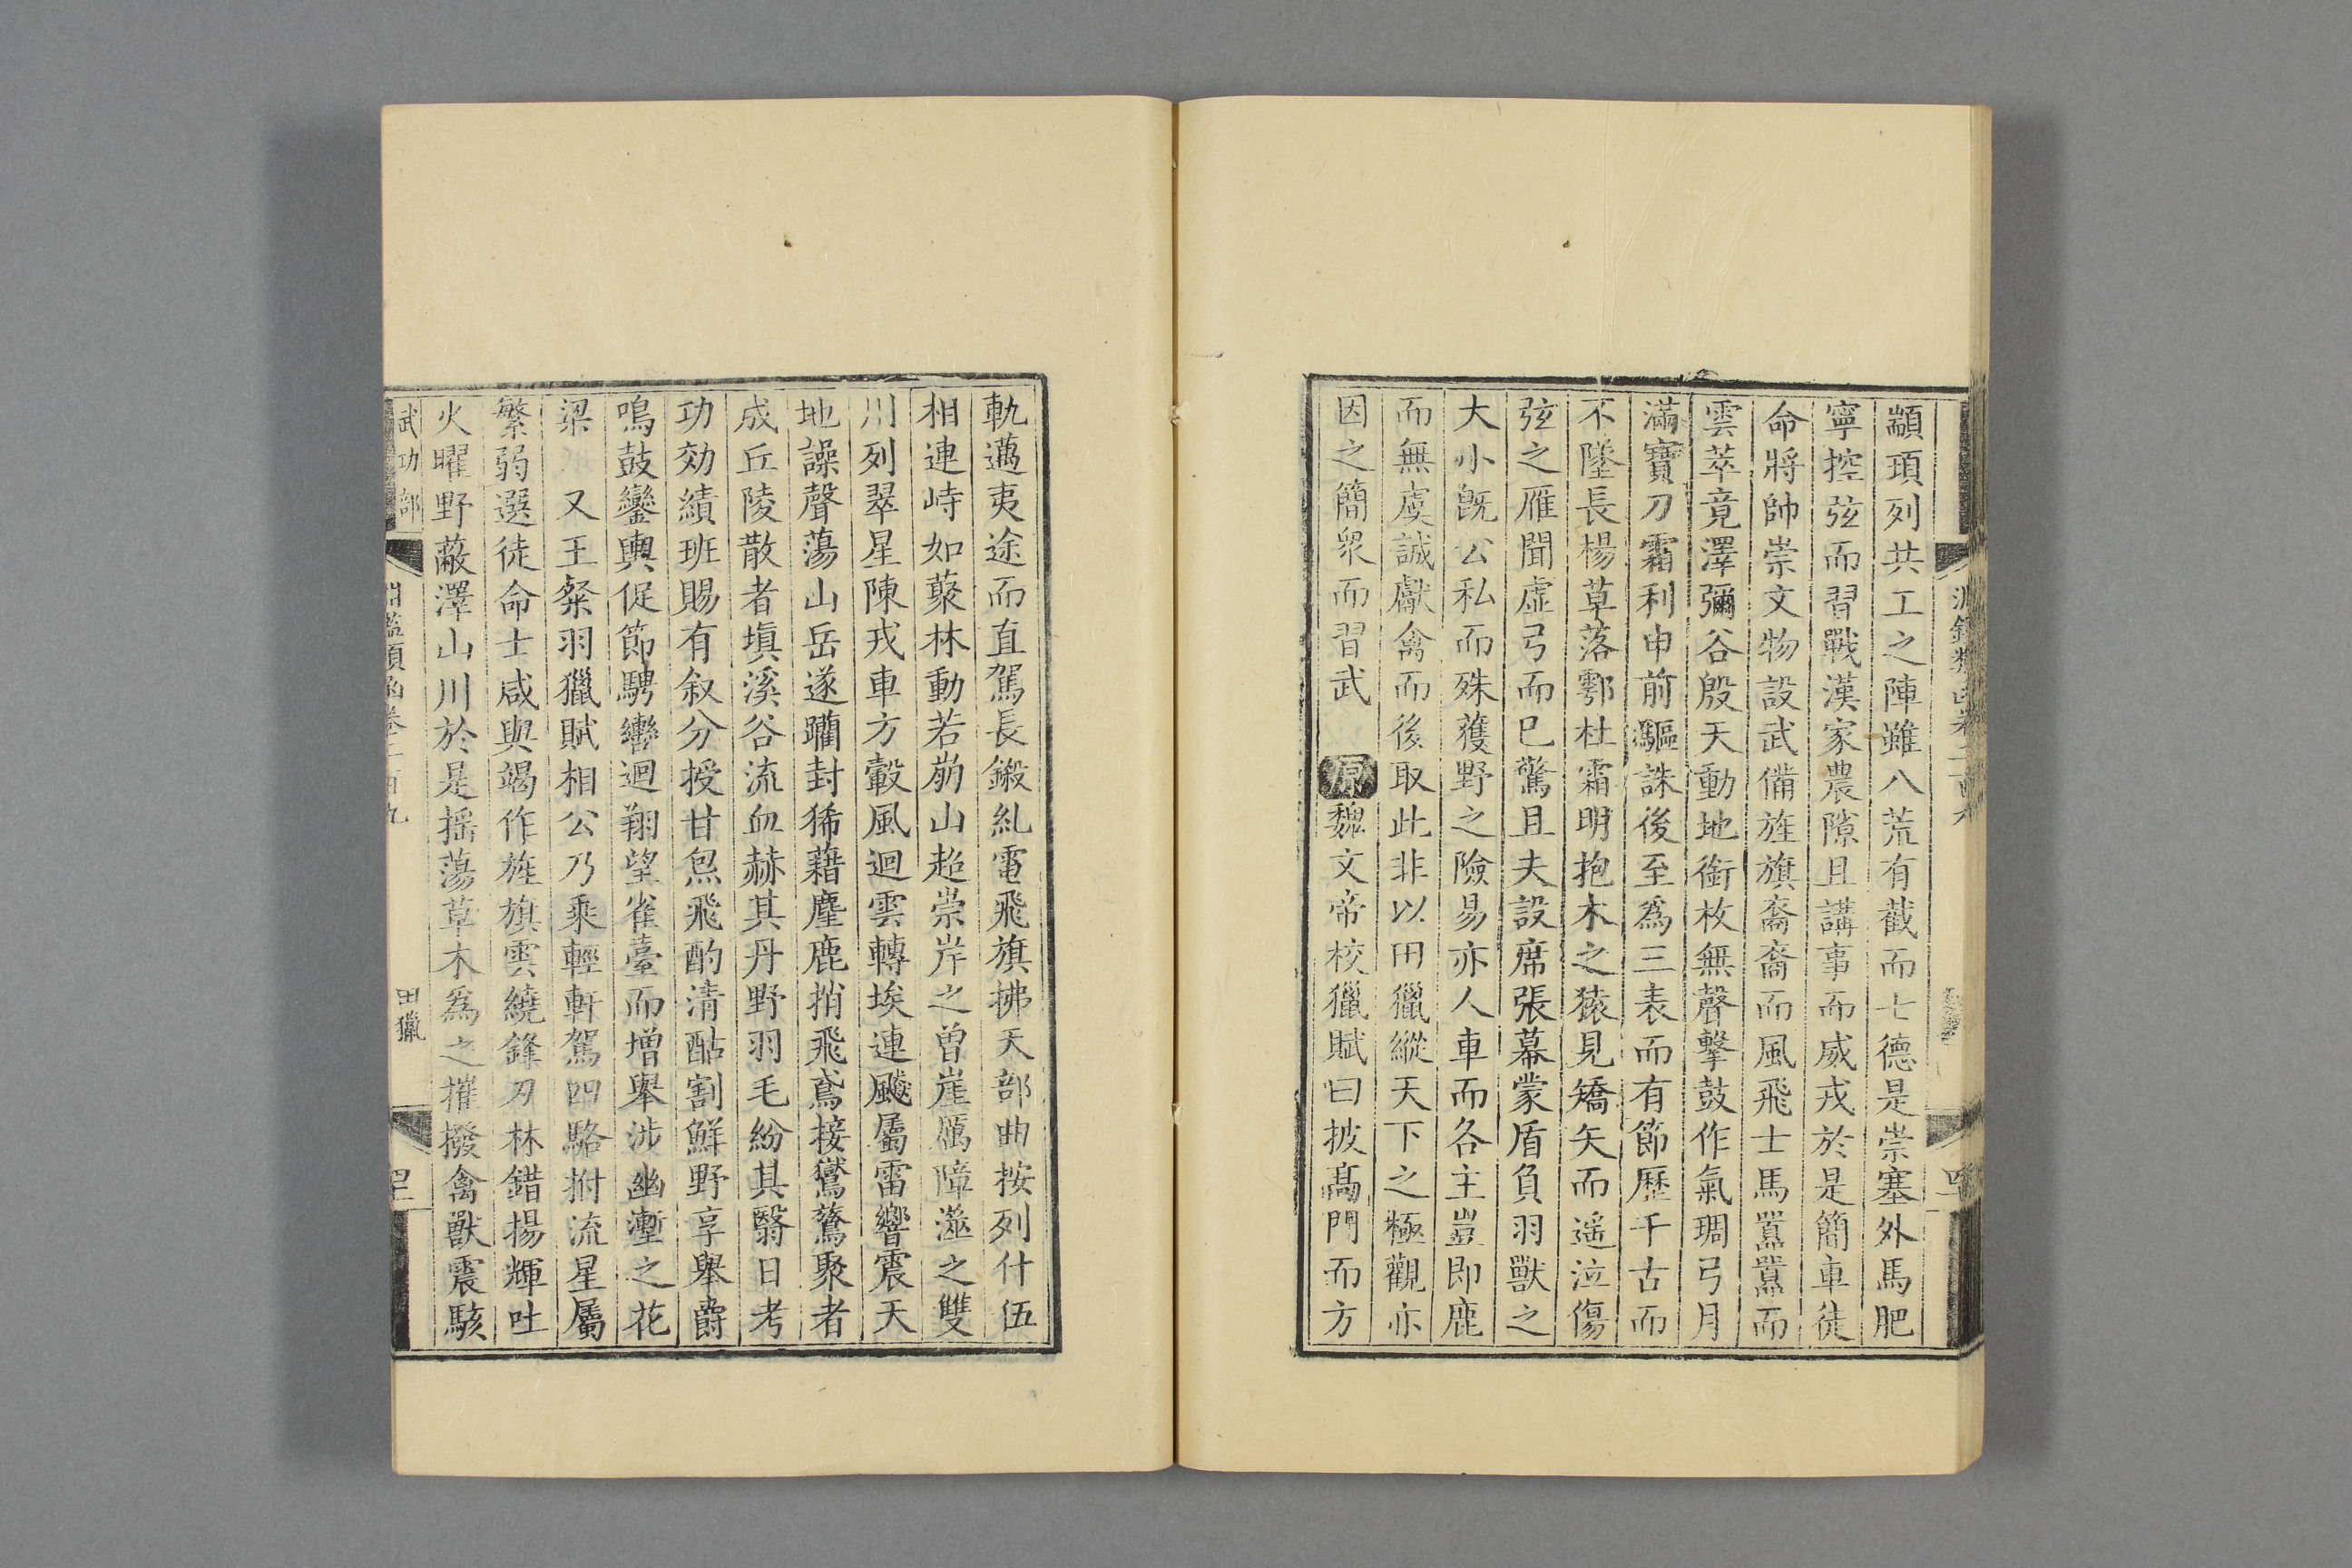 顓頊列共工之陣雖八荒有截而七德是崇塞外馬肥
寧控弦而習戰漢家農隙且講事而威戎於是簡車徒
命將帥崇文物設武備旌旗裔裔而風飛士馬囂囂而
雲萃竟澤彌谷殷天動地銜枚無聲擊鼓作氣琱弓月
滿寶刀霜利申前驅誅後至爲三表而有節歷千古而
不墜長楊草落鄠杜霜明抱木之猿見矯矢而遥泣傷
弦之雁聞虛弓而已驚且夫設席張幕蒙盾負羽獸之
大小旣公私而殊獲野之險易亦人車而各主豈即鹿
而無虞誠獻禽而後取此非以田獵縱天下之極觀亦
因之簡衆而習武 原魏文帝校獵賦曰披髙門而方
軌邁夷途而直駕長鎩糺電飛旗拂天部曲按列什伍
相連峙如藂林動若崩山超崇岸之曾崖厲障澨之雙
川列翠星陳戎車方轂風迴雲轉埃連飇屬雷響震天
地譟聲蕩山岳遂躪封狶藉麈鹿捎飛鳶接鸑鷟聚者
成丘陵散者塡溪谷流血赫其丹野羽毛紛其翳日考
功効績班賜有叙分授甘炰飛酌清酤割鮮野享舉爵
鳴鼓鑾輿促節騁轡迴翔望雀臺而增舉涉幽壍之花
梁 又王粲羽獵賦相公乃乘輕軒駕四駱拊流星屬
繁弱選徒命士咸與竭作旌旗雲繞鋒刃林錯揚輝吐
火曜野蔽澤山川於是摇蕩草木爲之摧撥禽獸震駭
武功部
田獵